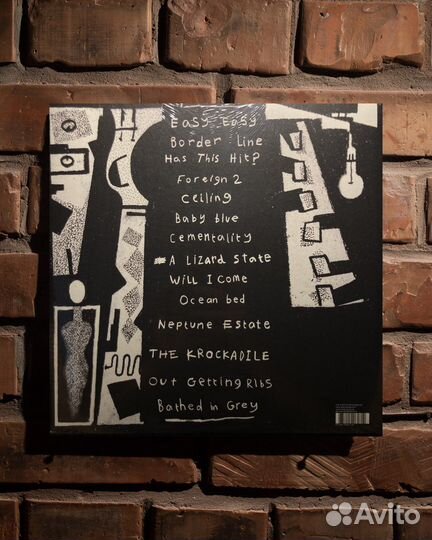 Easy Easy
Border Line
Has This Hit?
Foreign 2
Ceiling
Baby blue
Cementality
A Lizard State
Will I Come
Ocean bed
Neptune Estate
THE KROCKADILE
Out Getting Ribs
Bathed in Grey
Avito